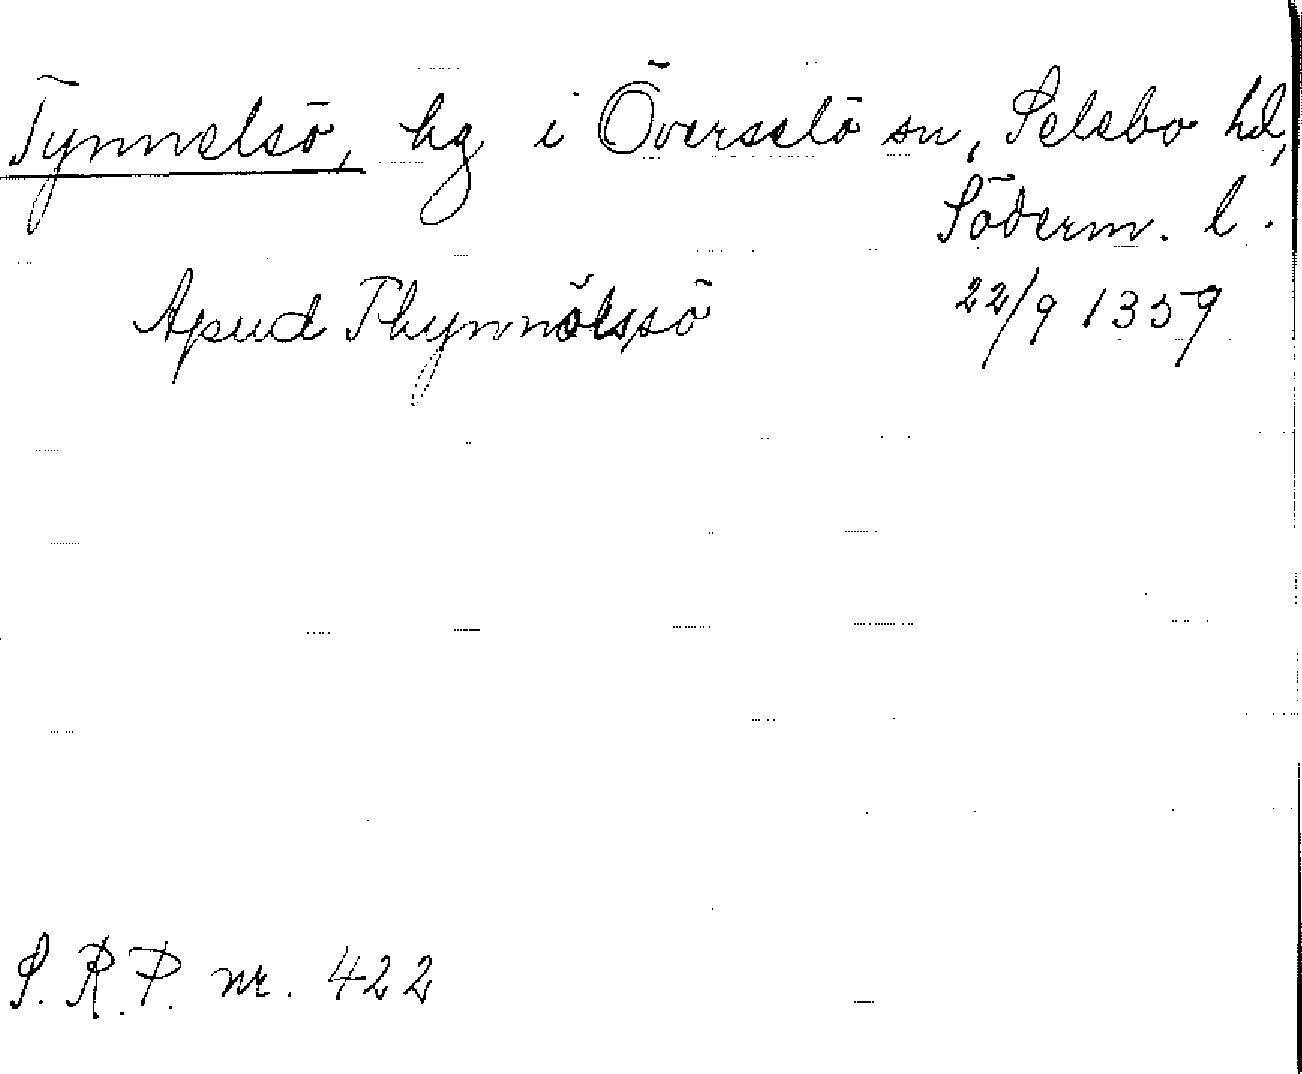 Tynnelsö, hg i Överselö sn, Selebo hd,
Söderm. l.
Apud Thynnölssö 22/9 1359
S. R. P. nr. 422